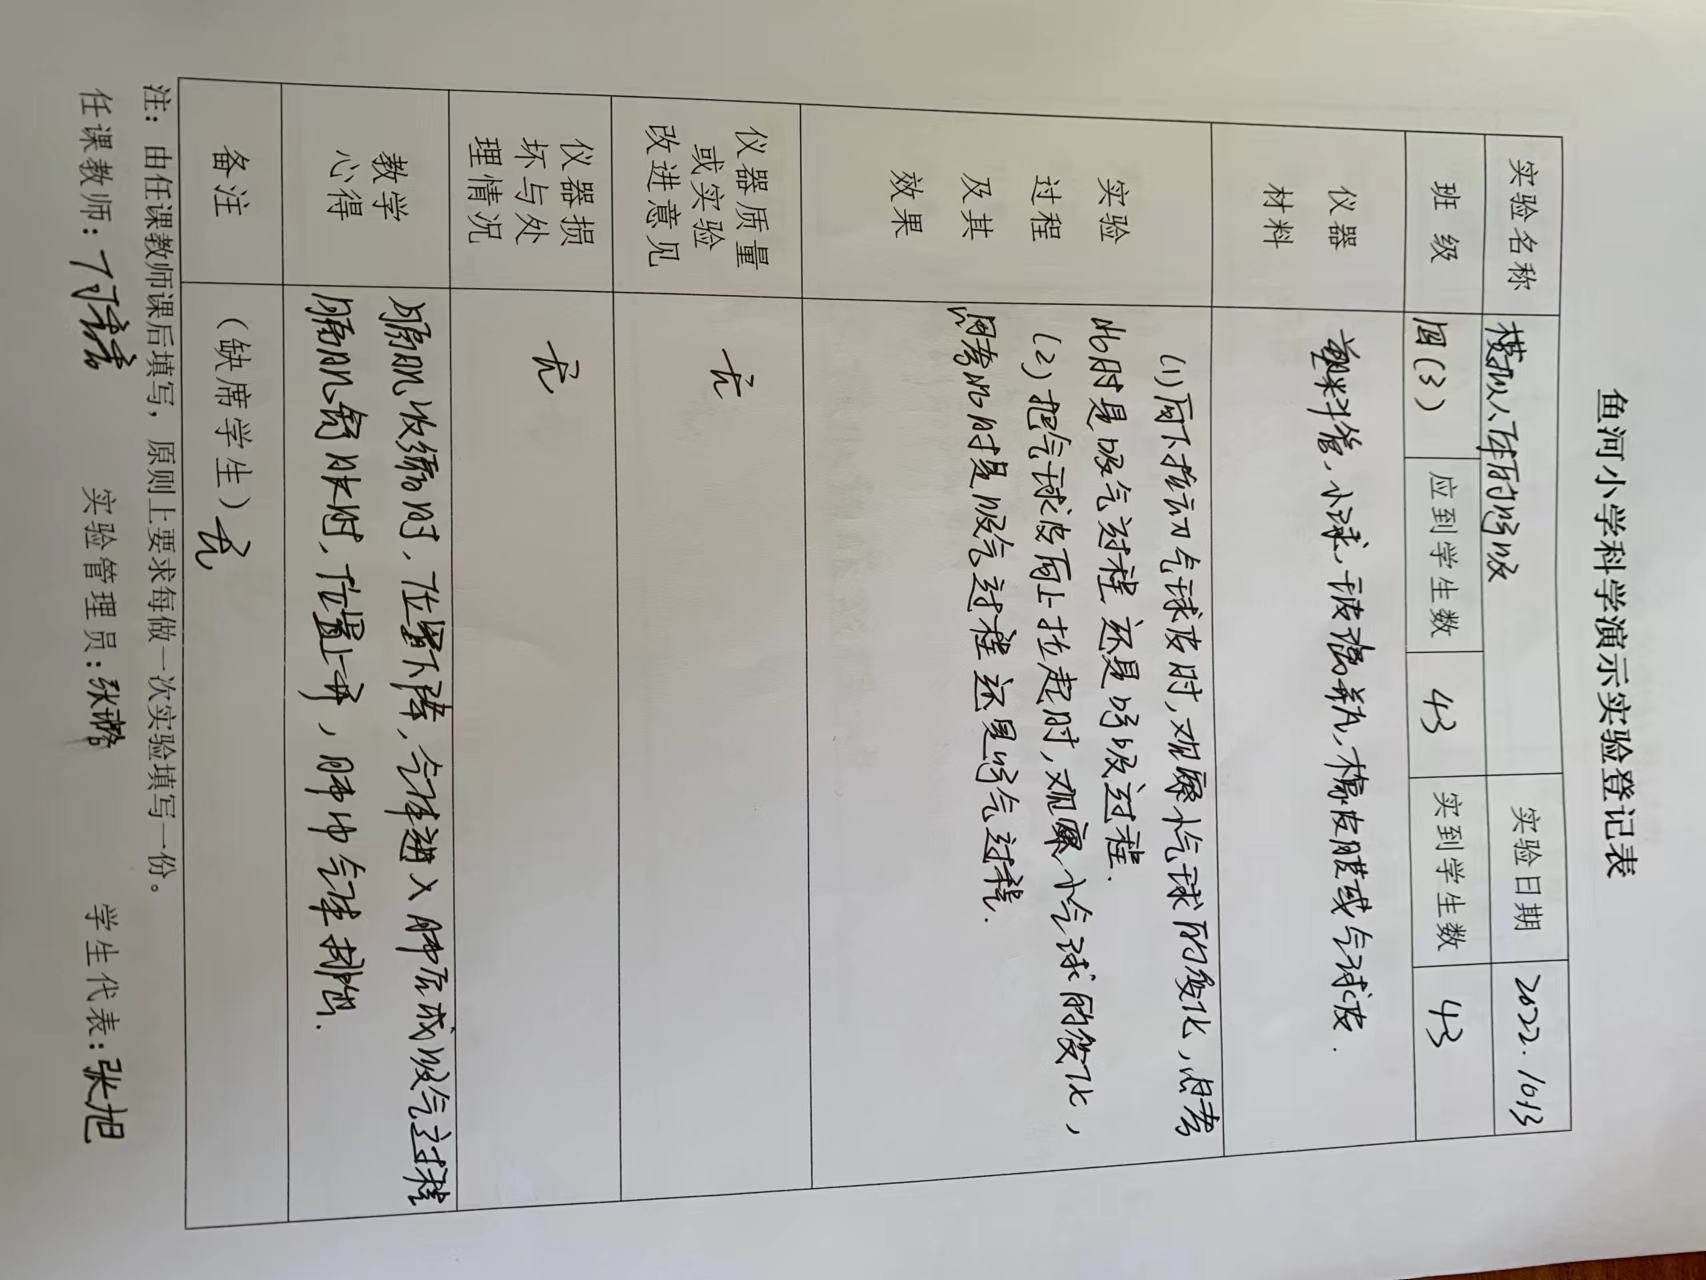 鱼河小学科学演示实验登记表
实验名称 模拟人体的呼吸 实验日期 2022.1013
班 级 四(3) 应到学生数 43 实到学生数 43
仪器
材料
塑料管、小球、玻璃瓶、橡皮膜或气球皮.
实验
过程
及其
效果
(1)向下拉动气球皮时,观察小气球的变化,思考
此时是吸气过程还是呼吸过程.
(2)把气球皮向上拉起时,观察小气球的变化,
思考此时是吸气过程还是呼气过程.
仪器质量
或实验
改进意见
无
仪器损
坏与处
理情况
无
教学
心得
膈肌收缩时,位置下降,气体进入肺后成吸气过程
膈肌舒张时,位置上升,肺中气体排出.
备注 (缺席学生)无
注:由任课教师课后填写,原则上要求每做一次实验填写一份。
任课教师: 实验管理员:张璐 学生代表:张旭